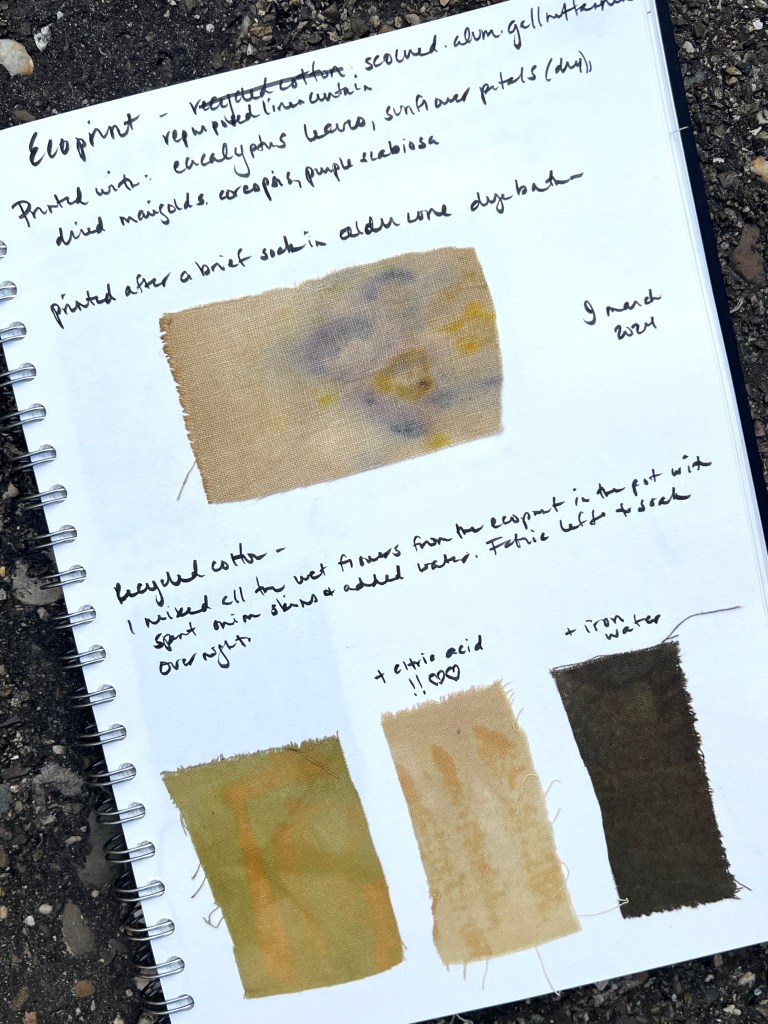 Ecoprint - recycled cotton. scoured. alum. gallnut
repurposed linen curtain
Printed with: eucalyptus leaves, sunflower petals (dry),
dried marigolds. coreopsis, purple scabiosa
printed after a brief soak in alder cone dye bath
9 march
2024
recycled cotton -
I mixed all the wet flowers from the ecoprint in the pot with
spent onion skins & added water. Fabric left to soak
overnight.
+ citric acid
!! ♡♡
+ iron
water